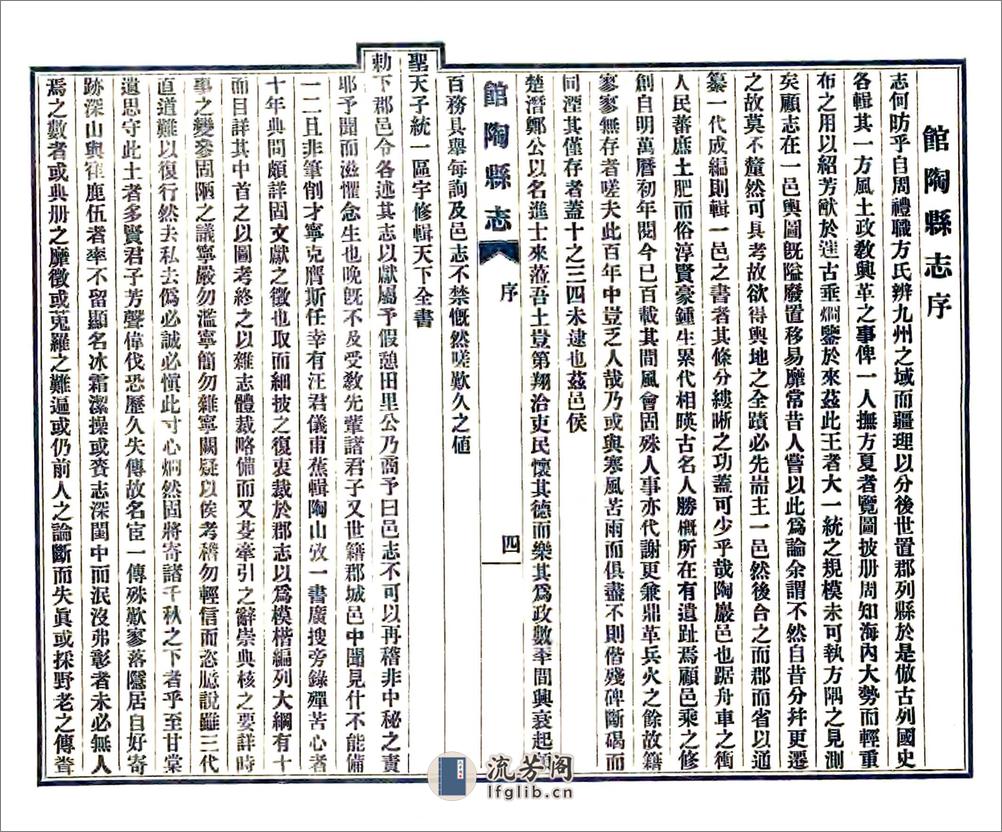 館陶縣志序
志何昉乎自周禮職方氏辨九州之域而疆理以分後世置郡列縣於是倣古列國史
各輯其一方風土政敎興革之事俾一人撫方夏者覽圖披册周知海內大勢而輕重
布之用以紹芳猷於逹古垂烱鑒於來茲此王者大一統之規模未可執方隅之見測
矣顧志在一邑輿圖旣隘廢置移易靡常昔人嘗以此爲論余謂不然自昔分幷更遷
之故莫不釐然可具考故欲得輿地之全蹟必先耑主一邑然後合之而郡而省以通
纂一代成編則輯一邑之書者其條分縷晰之功蓋可少乎哉陶巖邑也踞舟車之衝
人民蕃庶土肥而俗淳賢豪鍾生累代相暎古名人勝槪所在有遺趾焉顧邑乘之修
創自明萬曆初年閱今已百載其間風會固殊人事亦代謝更兼鼎革兵火之餘故籍
寥寥無存者嗟夫此百年中豈乏人哉乃或與寒風苦雨而俱盡不則偕殘碑斷碣而
同湮其僅存者蓋十之三四未逮也茲邑侯
楚潛鄭公以名進士來蒞吾土豈第翔洽吏民懷其德而樂其爲政數年間興衰起
館陶縣志
序
四
百務具舉每詢及邑志不禁慨然嗟歎久之値
聖
天子統一區宇修輯天下全書
勅
下郡邑令各述其志以獻屬予假憩田里公乃商予曰邑志不可以再稽非中秘之責
耶予聞而滋懼念生也晚旣不及受敎先輩諸君子又世籍郡城邑中聞見什不能備
一二且非筆削才寧克膺斯任幸有汪君儀甫蕉輯陶山攷一書廣搜旁錄殫苦心者
十年典問頗詳固文獻之徵也取而細披之復衷裁於郡志以爲模楷編列大綱有十
而目詳其中首之以圖考終之以雜志體裁略備而又芟牽引之辭崇典核之要詳時
事之變參固陋之議寧嚴勿濫寧簡勿雜寧闕疑以俟考稽勿輕信而恣臆說雖三代
直道難以復行然去私去僞必誠必愼此寸心烱然固將寄諸千秋之下者乎至甘棠
遺思守此土者多賢君子芳聲偉伐恐歷久失傳故名宦一傳殊歎寥落隱居自好寄
跡深山與隺鹿伍者率不留顯名冰霜潔操或賫志深閨中而泯沒弗彰者未必無人
焉之數者或典册之靡徵或蒐羅之難遍或仍前人之論斷而失眞或採野老之傳聾
流芳閣
lfglib.cn